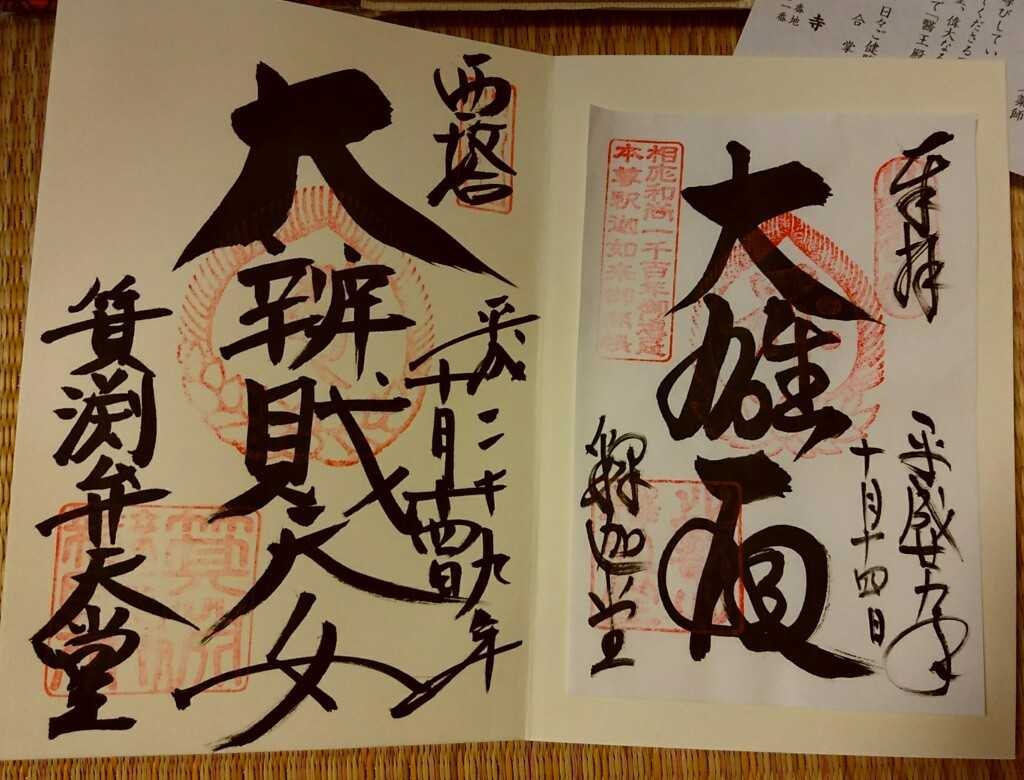 奉拝
平成廿九年
十月十四日
相應和尚一千百年御遠忌
本尊釈迦如来御
大雄殿
釋迦堂
西塔
平成二十九年
十月十四日
大辨財天女
箕渕弁天堂
合掌
寺